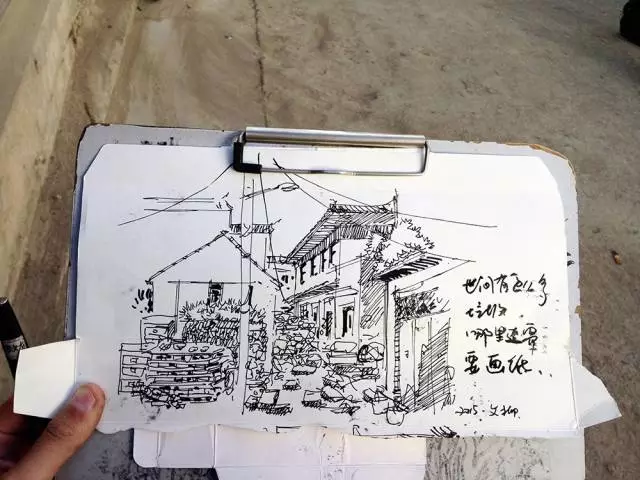 世间有这么多
垃圾，
哪里还需
要画纸..
2015.